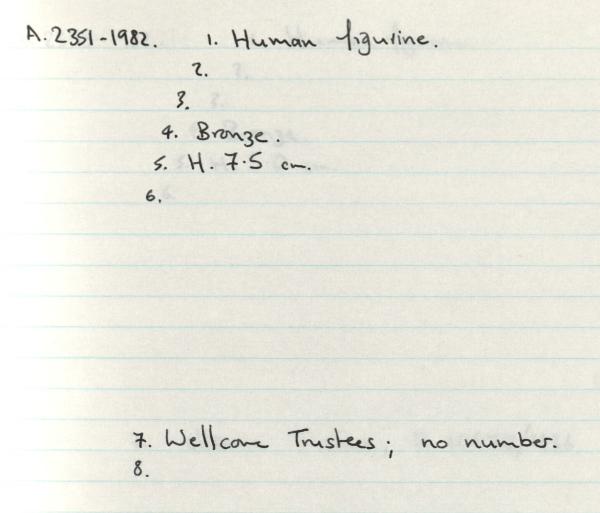 A.2351-1982. 1. Human figurine.
2.
3.
4. Bronze.
5. H. 7.5 cm.
6.
7. Wellcome Trustees; no number.
8.